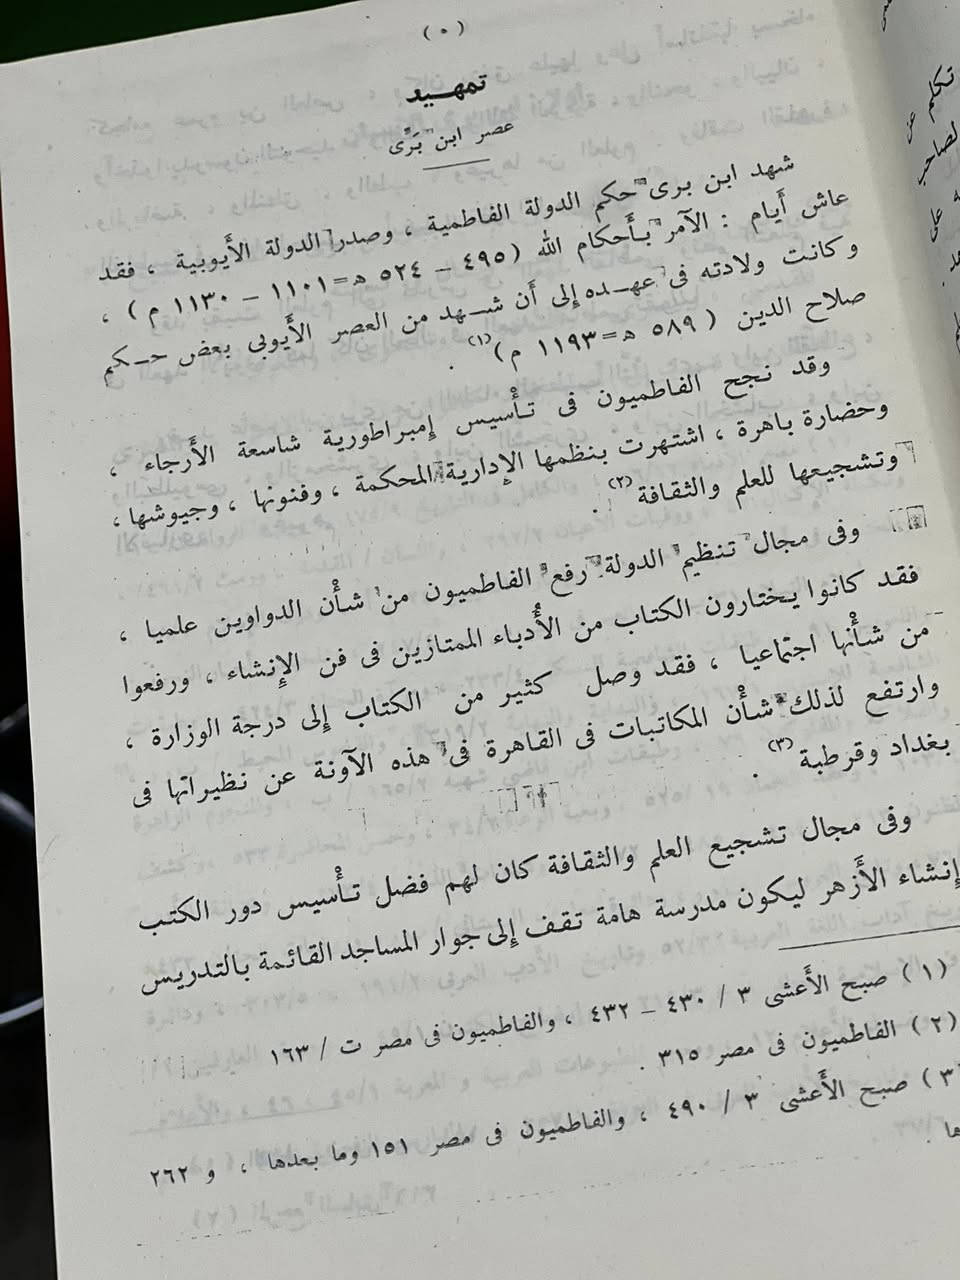 (٥)
تمهيد
عصر ابن بَرِّى
شهد ابن برى حكم الدولة الفاطمية ، وصدر الدولة الأيوبية ، فقد
عاش أيام : الآمر بأحكام الله (٤٩٥ – ٥٢٤ ه=١١٠١ – ١١٣٠ م) ،
وكانت ولادته فى عهده إلى أن شهد من العصر الأيوبى بعض حكم
صلاح الدين ( ٥٨٩ ه=١١٩٣ م)(١) .
وقد نجح الفاطميون فى تأسيس إمبراطورية شاسعة الأرجاء ،
وحضارة باهرة ، اشتهرت بنظمها الإدارية المحكمة ، وفنونها ، وجيوشها ،
وتشجيعها للعلم والثقافة (٢) .
وفى مجال تنظيم الدولة رفع الفاطميون من شأن الدواوين علميا ،
فقد كانوا يختارون الكتاب من الأُدباء الممتازين فى فن الإنشاء ، ورفعوا
من شأنها اجتماعيا ، فقد وصل كثير من الكتاب إلى درجة الوزارة ،
وارتفع لذلك شأن المكاتبات فى القاهرة فى هذه الآونة عن نظيراتها فى
بغداد وقرطبة (٣) .
وفى مجال تشجيع العلم والثقافة كان لهم فضل تأسيس دور الكتب
إنشاء الأزهر ليكون مدرسة هامة تقف إلى جوار المساجد القائمة بالتدريس
(١) صبح الأعشى ٣ / ٤٣٠ – ٤٣٢ ، والفاطميون فى مصر ت / ١٦٣
(٢) الفاطميون فى مصر ٣١٥ .
٣) صبح الأعشى ٣ / ٤٩٠ ، والفاطميون فى مصر ١٥١ وما بعدها ، و ٢٦٢
ها .
تكلم عن
لصاحب
على